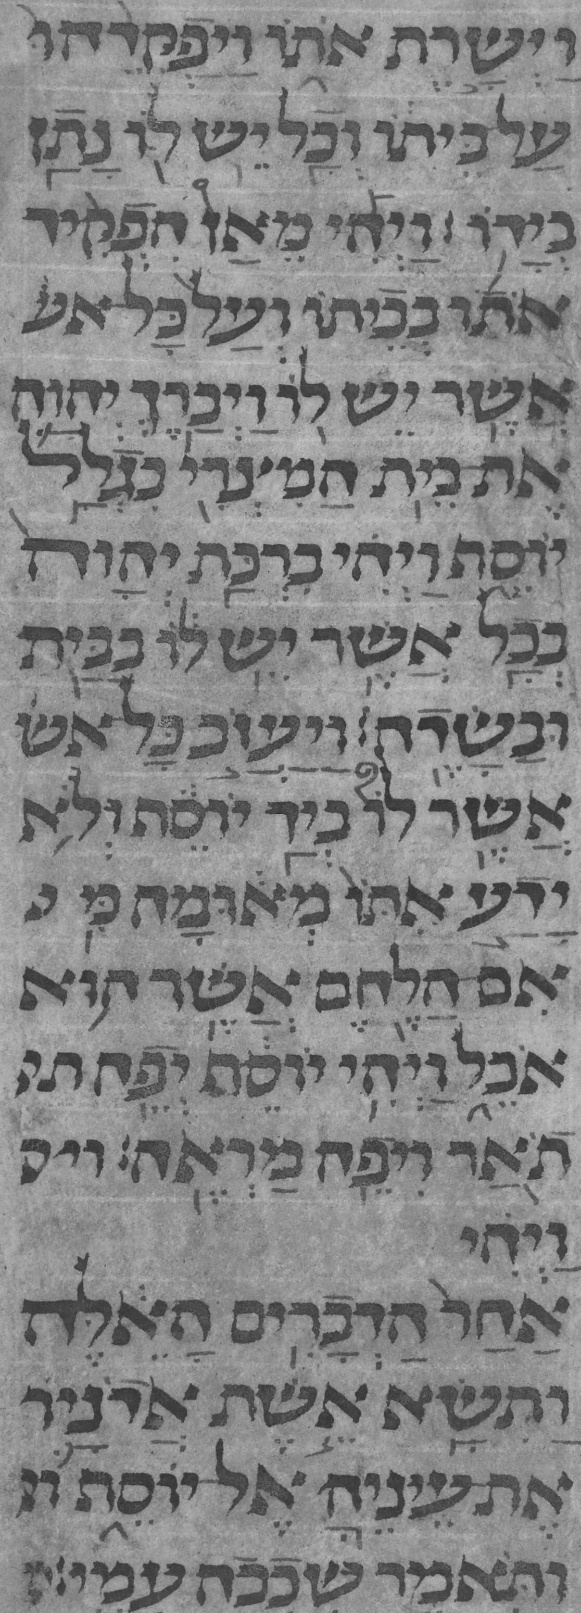 וישרת אתו ויפקדהו
על ביתו וכל יש לו נתן
בידו׃ ויהי מאז הפקיד
אתו בביתו ועל כל אש
אשר יש לו ויברך יהוה
את בית המצרי בגלל
יוסף ויהי ברכת יהוה
בכל אשר יש לו בבית
ובשדה׃ ויעזב כל אש
אשר לו ביד יוסף ולא
ידע אתו מאומה כ
אם הלחם אשר הוא
אכל ויהי יוסף יפה ת
תאר ויפה מראה׃ וי
ויהי
אחר הדברים האלה
ותשא אשת אדניו
את עיניה אל יוסף ו
ותאמר שכבה עמי׃